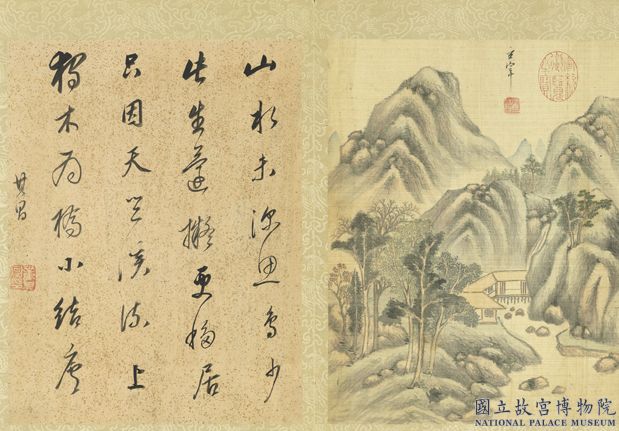 山未深鳥少
此生還擬更移居
只因天竺溪流上
獨木為橋小結廬
其昌
國立故宮博物院
NATIONAL PALACE MUSEUM